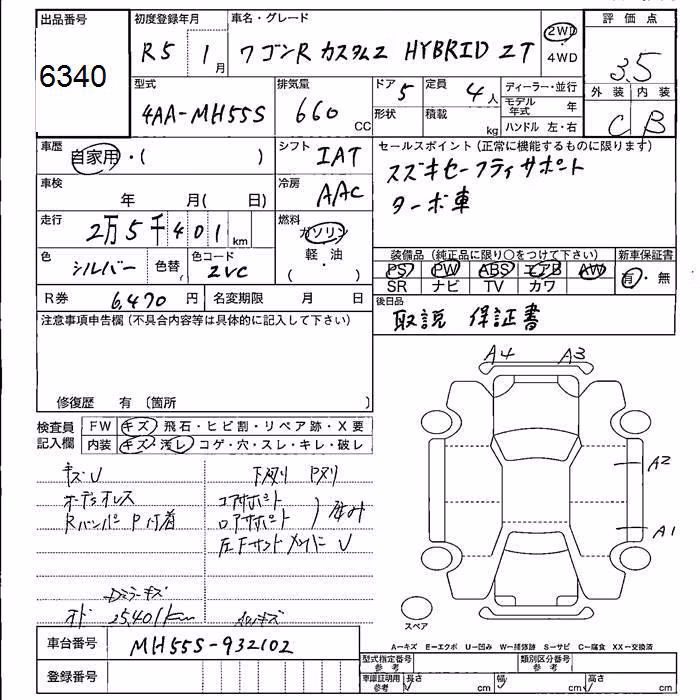 出品番号
6340
初度登録年月
R5 1月
車名・グレード
ワゴンR カスタムZ HYBRID ZT
2WD・4WD
評価点
3.5
外装 内装
C B
型式
4AA-MH55S
排気量
660 CC
ドア 5
形状
定員 4人
積載 kg
ディーラー・並行
モデル年式 年
ハンドル 左・右
車歴
自家用・( )
シフト IAT
セールスポイント(正常に機能するものに限ります)
スズキセーフティサポート
ターボ車
車検 年 月( 日)
冷房 AAC
走行
2万5千401km
燃料
ガソリン
軽・油
( ・ )
色 シルバー 色替
色コード ZVC
装備品(純正品に限り○をつけて下さい)
PS PW ABS エアB AW
SR ナビ TV カワ
新車保証書
有・無
R券 6,470円
名変期限 月 日
後日品
取説 保証書
注意事項申告欄(不具合内容等は具体的に記入して下さい)
修復歴 有(箇所 )
A4 A3
A2
A1
検査員記入欄
FW キズ・飛石・ヒビ割・リペア跡・X要
内装 キズ・汚レ・コゲ・穴・スレ・キレ・破レ
キズU
オーディオレス
Rバンパー P付着
コアサポート
ロアサポート
左Fサイドメンバー U
Dミラーキズ
オド 25,401km
スペア
A―キズ E―エクボ U―凹み W―補修跡 S―サビ C―腐食 XX―交換済
車台番号 MH55S-932102
登録番号
型式指定番号 参考
類別区分番号 参考
車庫証明用 参考
長さ cm 幅 cm 高さ cm